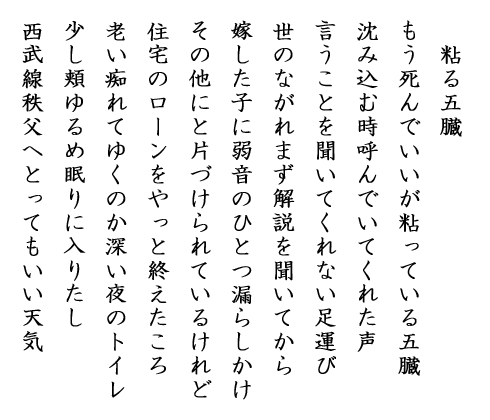 粘る五臓
もう死んでいいが粘っている五臓
沈み込む時呼んでいてくれた声
言うことを聞いてくれない足運び
世のながれまず解説を聞いてから
嫁した子に弱音のひとつ漏らしかけ
その他にと片づけられているけれど
住宅のローンをやっと終えたころ
老い痴れてゆくのか深い夜のトイレ
少し頬ゆるめ眠りに入りたし
西武線秩父へとってもいい天気